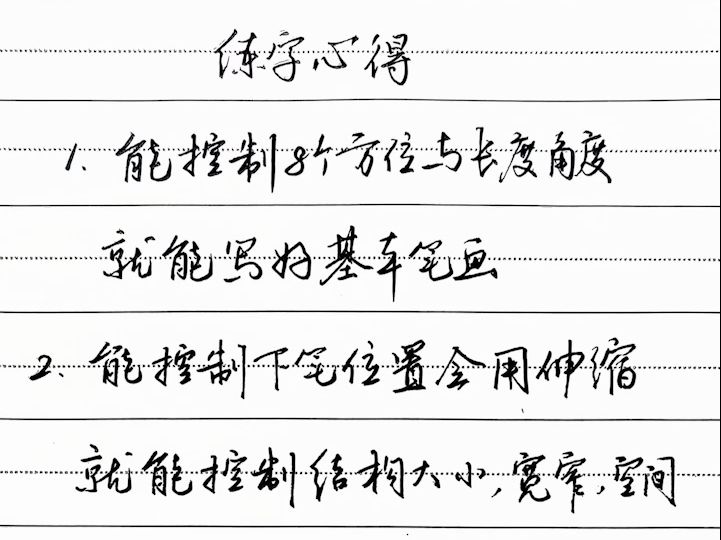 练字心得
1. 能控制8个方位与长度角度
就能写好基本笔画
2. 能控制下笔位置会用伸缩
就能控制结构大小,宽窄,空间